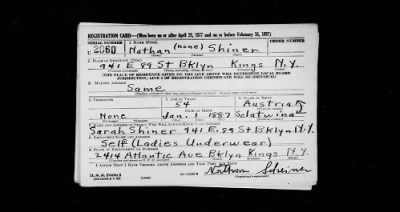 REGISTRATION CARD—(Men born on or after April 28, 1877 and on or before February 16, 1897)
SERIAL NUMBER 1. NAME (Print) ORDER NUMBER
U 2060 Nathan (none) Shiner
2. PLACE OF RESIDENCE (Print)
941 E 89 St Bklyn Kings N.Y.
[THE PLACE OF RESIDENCE GIVEN ON THE LINE ABOVE WILL DETERMINE LOCAL BOARD
JURISDICTION; LINE 2 OF REGISTRATION CERTIFICATE WILL BE IDENTICAL]
3. MAILING ADDRESS
Same
4. TELEPHONE 5. AGE IN YEARS 6. PLACE OF BIRTH
54 Austria
DATE OF BIRTH
None Jan. 1 1887
7. NAME AND ADDRESS OF PERSON WHO WILL ALWAYS KNOW YOUR ADDRESS
Sarah Shiner 941 E. 89 St Bklyn N.Y.
8. EMPLOYER'S NAME AND ADDRESS
Self (Ladies Underwear)
9. PLACE OF EMPLOYMENT OR BUSINESS
2414 Atlantic Ave Bklyn Kings N.Y.
I AFFIRM THAT I HAVE VERIFIED ABOVE ANSWERS AND THAT THEY ARE TRUE.
D. S. S. Form 1 Nathan